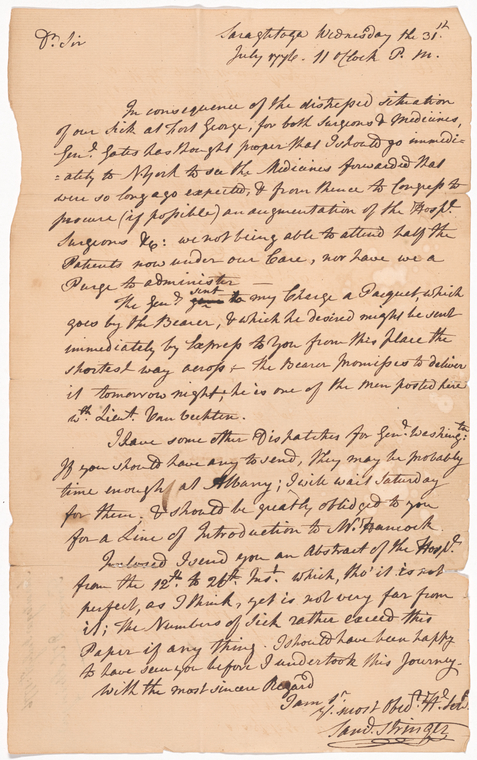 Saraghtoga Wednesday the 31th
Dr. Sir
July 1776. 11 oClock P. M.
In consequence of the distressed situation
of our Sick at Fort George, for both Surgeons & Medicines,
Genl. Gates has thought proper that I should go immedi=
=ately to N York to see the Medicines forwarded that
were so long ago expected, & from thence to Congress to
procure (if possible) an augmentation of the Hospl.
Surgeons &c: we not being able to attend half the
Patients now under our Care, nor have we a
Purge to administer —
The Genl. sent to my Charge a Pacquet, which
goes by the Bearer, & which he desired might be sent
immediately by Express to You from this place the
shortest way across & the Bearer promisses to deliver
it tomorrow night; he is one of the men posted here
wth. Lieut. Van Vechten.
I have some other Dispatches for Genl. Washingtn:
If you should have any to send, they may be probably
time enough at Albany; I will wait Saturday
for them. & should be greatly obliged to you
for a Line of Introduction to Mr. Hancock
Inclosed I send you an Abstract of the Hospl.
from the 12th. to 26th Inst. which, tho' it is not
perfect, as I think, yet is not very far from
it; the Numbers of Sick rather exceed this
Paper if any thing. I should have been happy
to have seen you before I undertook this Journey.
With the most sincere Regard
I am Sr.
Yr. most Obedt. H. Servt.
Saml. Stringer